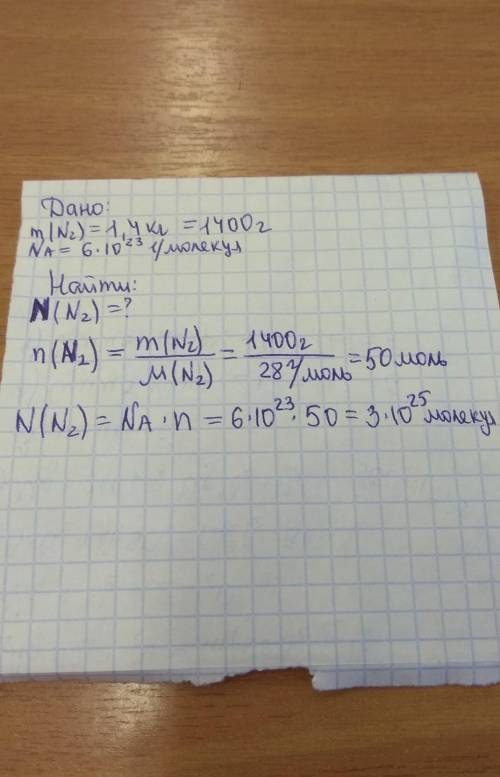 Дано:
m(N₂) = 1,4 кг = 1400 г
NA = 6·10²³ 1/молекул
Найти:
N(N₂) = ?
n(N₂) = m(N₂)/M(N₂) = 1400 г/28 г/моль = 50 моль
N(N₂) = NA · n = 6·10²³ · 50 = 3·10²⁵ молекул